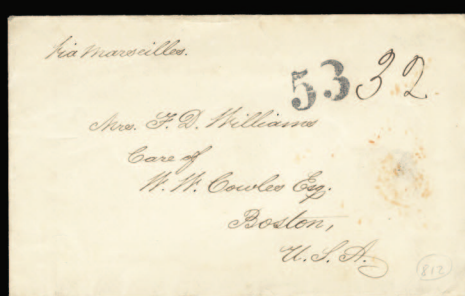 Via Marseilles.
53 32
Mrs. F. D. Williams
Care of
W. W. Cowles Esq.
Boston,
U. S. A.
812